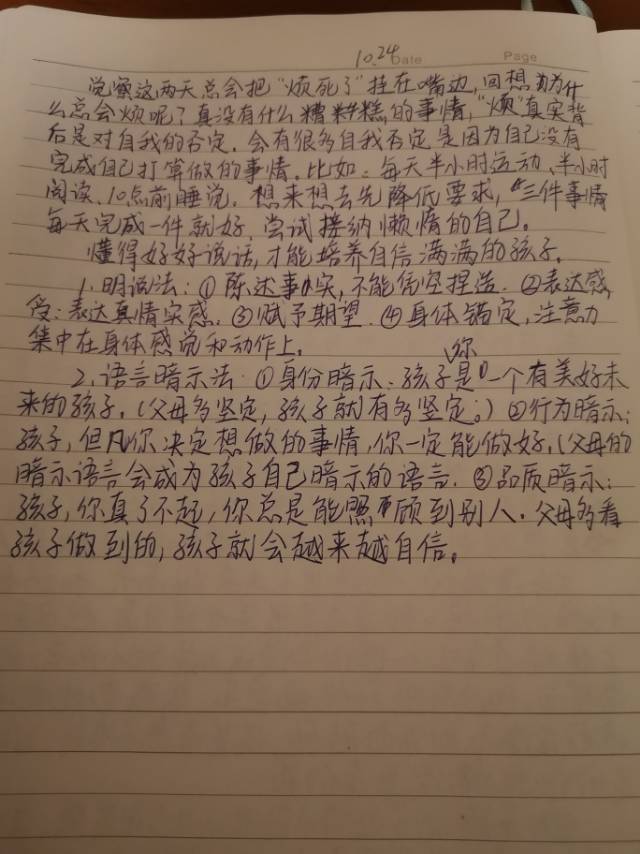 10.24 Date Page
觉察这两天总会把“烦死了”挂在嘴边,回想为什
么总会烦呢?真没有什么糟糕的事情,“烦”真实背
后是对自我的否定,会有很多自我否定是因为自己没有
完成自己打算做的事情。比如:每天半小时运动、半小时
阅读、10点前睡觉。想来想去先降低要求,三件事情
每天完成一件就好,尝试接纳懒惰的自己。
懂得好好说话,才能培养自信满满的孩子。
1.明说法:①陈述事实,不能凭空捏造.②表达感
受:表达真情实感.③赋予期望.④身体锚定,注意力
集中在身体感觉和动作上。
2.语言暗示法.①身份暗示:孩子你是一个有美好未
来的孩子.(父母多坚定,孩子就有多坚定;)②行为暗示:
孩子,但凡你决定想做的事情,你一定能做好.(父母的
暗示语言会成为孩子自己暗示的语言.③品质暗示:
孩子,你真了不起,你总是能照顾到别人.父母多看
孩子做到的,孩子就会越来越自信。